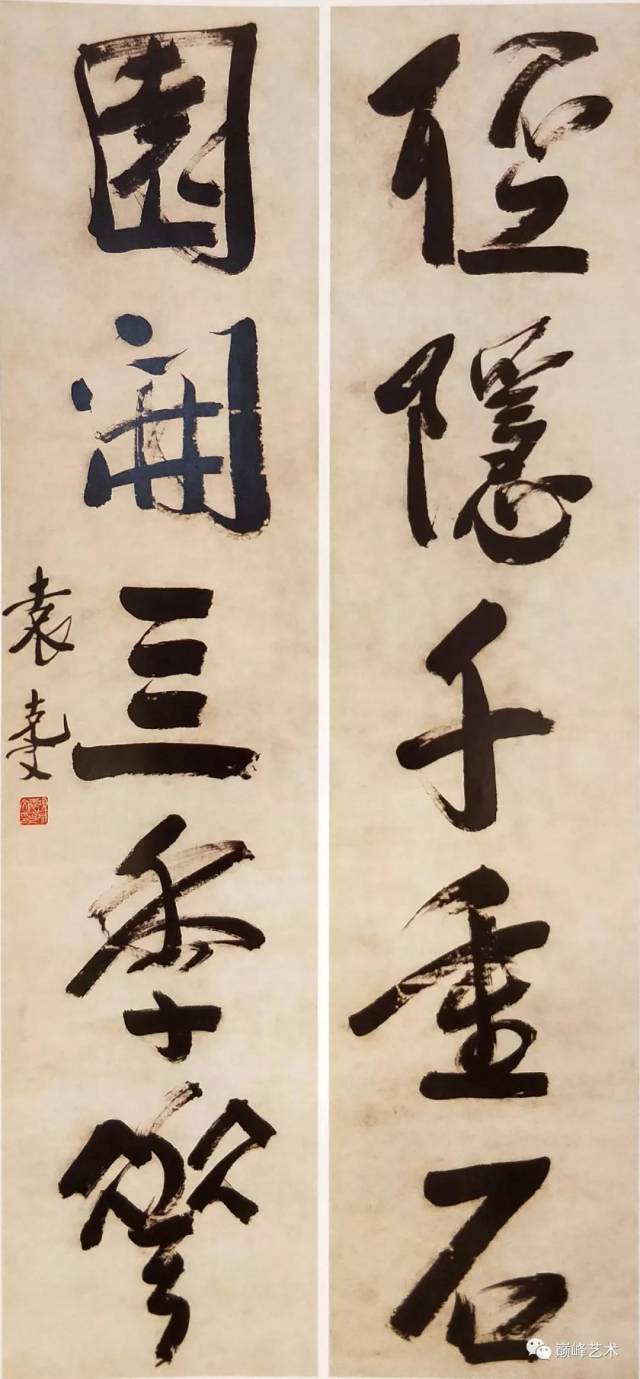 径隱千重石
園開三季
袁
巅峰艺术